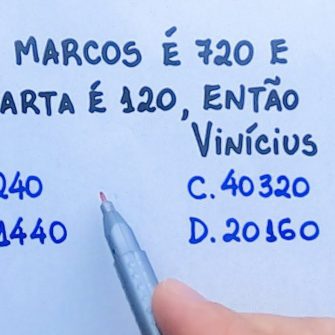 MARCOS É 720 E
ARTA É 120, ENTÃO
Vinícius
240 C. 40320
1440 D. 20160